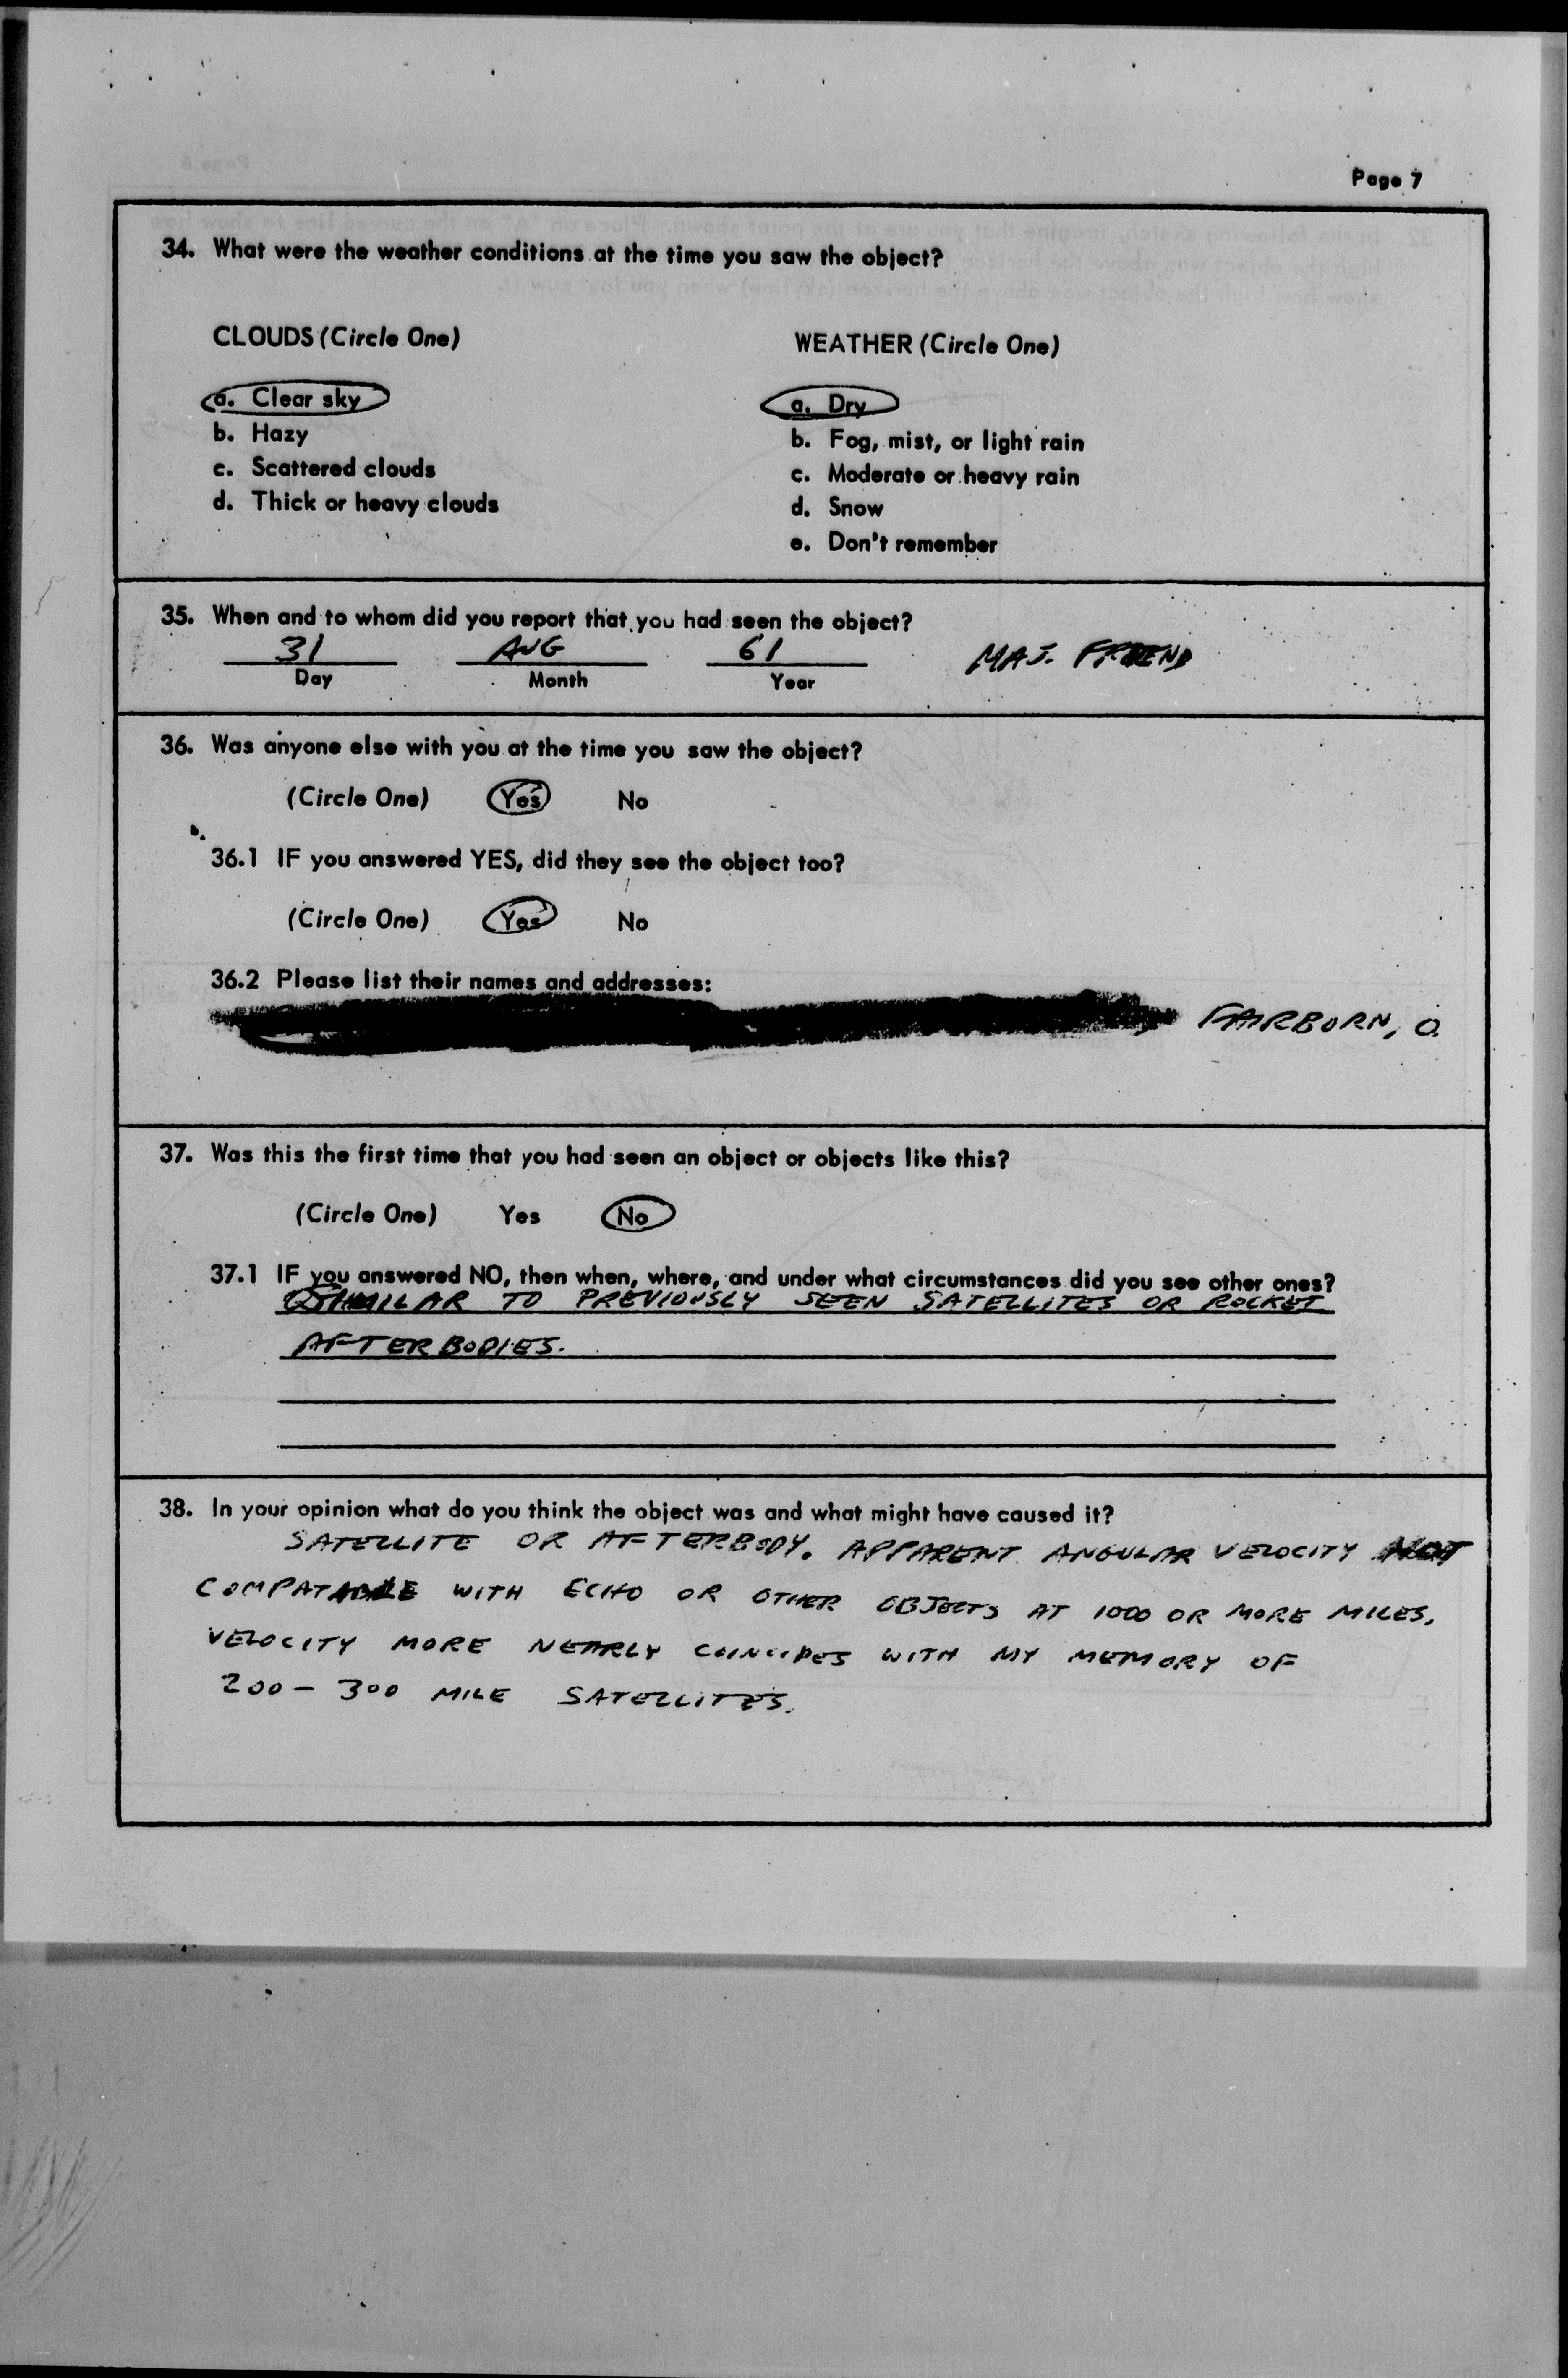 Page 7
34. What were the weather conditions at the time you saw the object?
CLOUDS (Circle One)
WEATHER (Circle One)
a. Clear sky
b. Hazy
c. Scattered clouds
d. Thick or heavy clouds
a. Dry
b. Fog, mist, or light rain
c. Moderate or heavy rain
d. Snow
e. Don't remember
35. When and to whom did you report that you had seen the object?
31 AUG 61 MAJ. FRIEND
Day Month Year
36. Was anyone else with you at the time you saw the object?
(Circle One) Yes No
36.1 IF you answered YES, did they see the object too?
(Circle One) Yes No
36.2 Please list their names and addresses:
FAIRBORN, O.
37. Was this the first time that you had seen an object or objects like this?
(Circle One) Yes No
37.1 IF you answered NO, then when, where, and under what circumstances did you see other ones?
SIMILAR TO PREVIOUSLY SEEN SATELLITES OR ROCKET
AFTERBODIES.
38. In your opinion what do you think the object was and what might have caused it?
SATELLITE OR AFTERBODY. APPARENT ANGULAR VELOCITY NOT
COMPATABLE WITH ECHO OR OTHER OBJECTS AT 1000 OR MORE MILES.
VELOCITY MORE NEARLY COINCIDES WITH MY MEMORY OF
200 - 300 MILE SATELLITES.